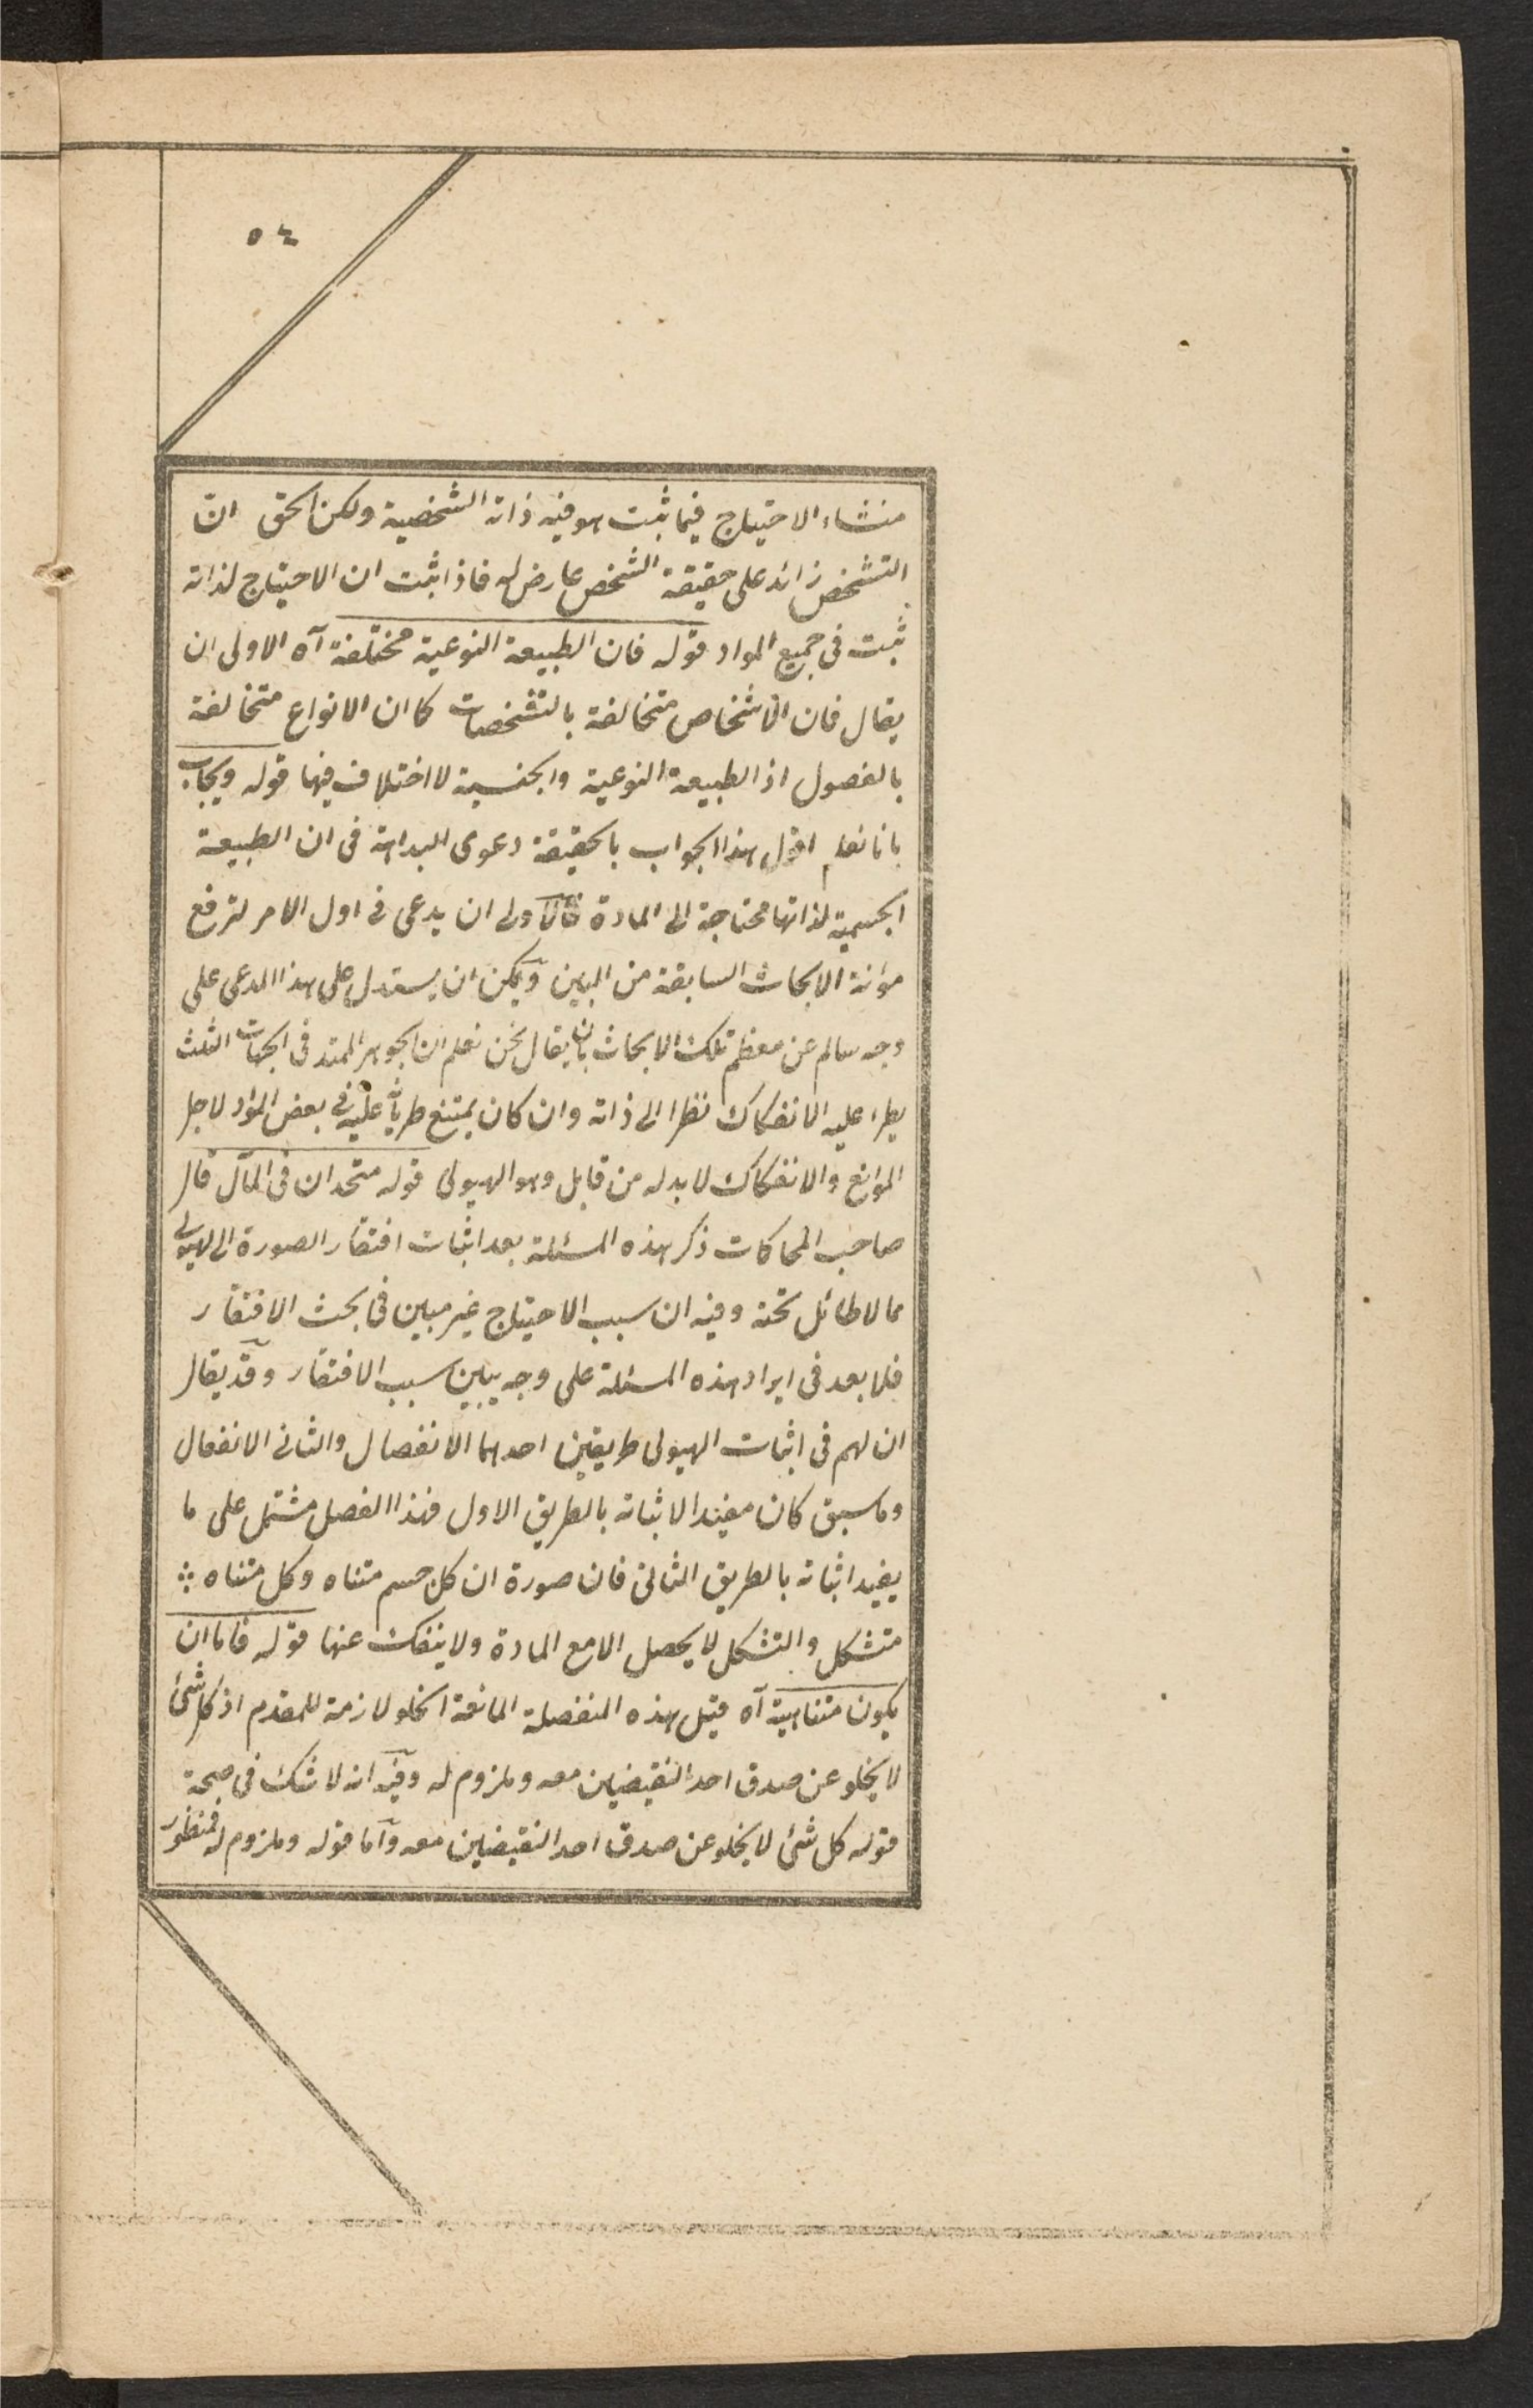 ٥٤
منشاء الاحتياج فيما ثبت هو فيه ذاته الشخصية ولكن الحق انّ
التشخص زائد على حقيقة الشخص عارض له فاذا ثبت ان الاحتياج لذاته
ثبت فى جميع المواد قوله فان الطبيعة النوعية مختلفة آه الاولى ان
يقال فان الاشخاص متخالفة بالتشخصات كما ان الانواع متخالفة
بالفصول اذ الطبيعة النوعية والجنسية لا اختلاف فيها قوله ويجاب
بانا نعلم اقول هذا الجواب بالحقيقة دعوى البداهة فى ان الطبيعة
الجسمية لذاتها محتاجة الى المادة فالاولى ان يدعى فى اول الامر لترفع
مؤنة الابحاث السابقة من البين ويمكن ان يستدل على هذا المدعى على
وجه سالم عن معظم تلك الابحاث بان يقال نحن نعلم ان الجوهر الممتد فى الجهات الثلث
يطرء عليه الانفكاك نظرا الى ذاته وان كان يمتنع طريانه عليه فى بعض المواد لاجل
الموانع والانفكاك لا بد له من قابل وهو الهيولى قوله متحدان فى المآل قال
صاحب المحاكات ذكر هذه المسئلة بعد اثبات افتقار الصورة الى الهيولى
مما لا طائل تحته وفيه ان سبب الاحتياج غير مبين فى بحث الافتقار
فلا بعد فى ايراد هذه المسئلة على وجه يبين سبب الافتقار وقد يقال
ان لهم فى اثبات الهيولى طريقين احدهما الانفصال والثانى الانفعال
وما سبق كان مفيدا لاثباته بالطريق الاول فهذا الفصل مشتمل على ما
يفيد اثباته بالطريق الثانى فان صورة ان كل جسم متناه وكل متناه
متشكل والتشكل لا يحصل الا مع المادة ولا ينفك عنها قوله فاما ان
يكون متناهية آه قيل هذه المنفصلة المانعة الخلو لازمة للمقدم اذ كل شئ
لا يخلو عن صدق احد النقيضين معه وملزوم له وفيه انه لا شك فى صحة
قوله كل شئ لا يخلو عن صدق احد النقيضين معه واما قوله وملزوم له فمنظور